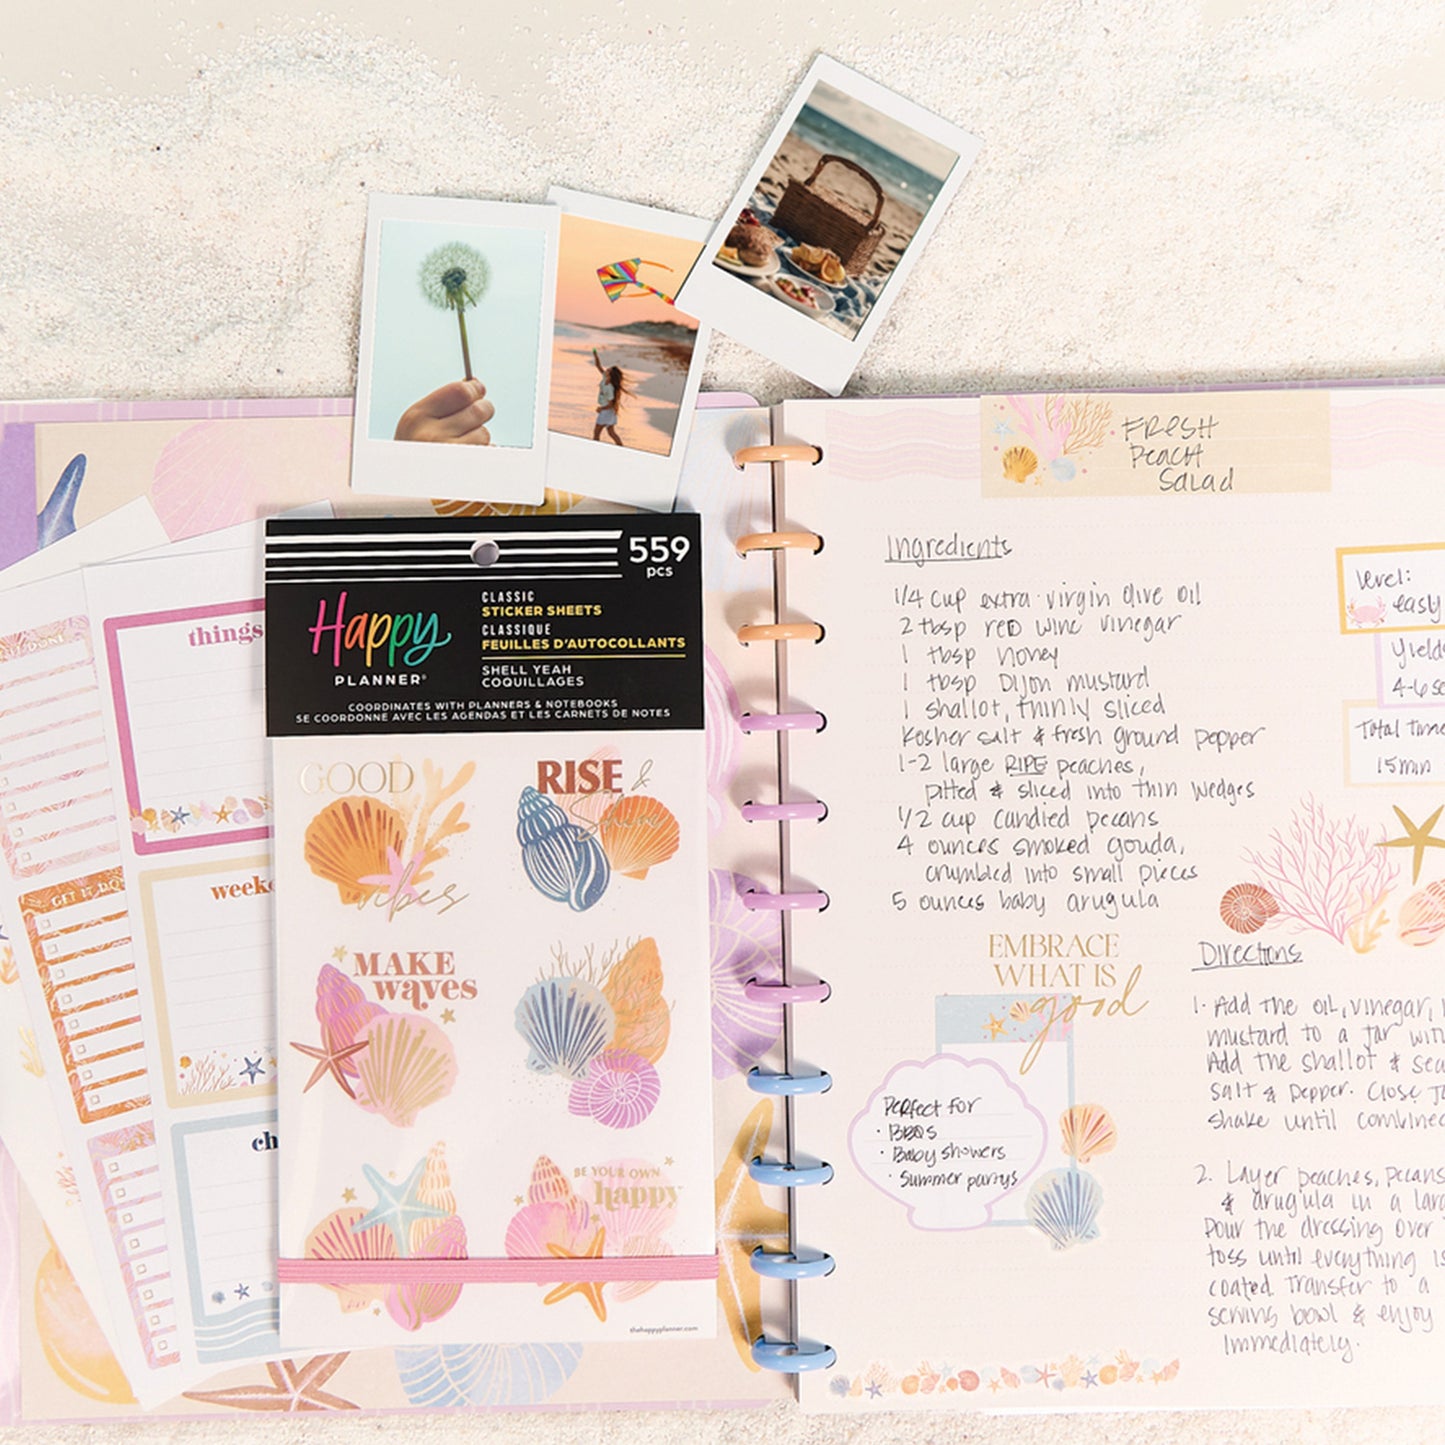 559
pcs
Happy
PLANNER®
CLASSIC
STICKER SHEETS
CLASSIQUE
FEUILLES D'AUTOCOLLANTS
SHELL YEAH
COQUILLAGES
COORDINATES WITH PLANNERS & NOTEBOOKS
SE COORDONNE AVEC LES AGENDAS ET LES CARNETS DE NOTES
GOOD
vibes
RISE &
Shine
MAKE
waves
BE YOUR OWN
happy
thehappyplanner.com
things
GET IT DO
FRESH
Peach
Salad
Ingredients
1/4 cup extra-virgin olive oil
2 tbsp red wine vinegar
1 tbsp honey
1 tbsp Dijon mustard
1 shallot, thinly sliced
Kosher salt & fresh ground pepper
1-2 large RIPE peaches,
pitted & sliced into thin wedges
1/2 cup candied pecans
4 ounces smoked gouda,
crumbled into small pieces
5 ounces baby arugula
level:
easy
Yield
4-6 se
Total Time
15 min
EMBRACE
WHAT IS
good
Perfect for
· BBQs
· Baby showers
· Summer partys
Directions
1. Add the oil, vinegar,
mustard to a jar with
Add the shallot & sea
salt & pepper. Close
shake until combined
2. Layer peaches, pecans
& arugula in a lar
Pour the dressing over
toss until everything is
coated. Transfer to a
serving bowl & enjoy
immediately.